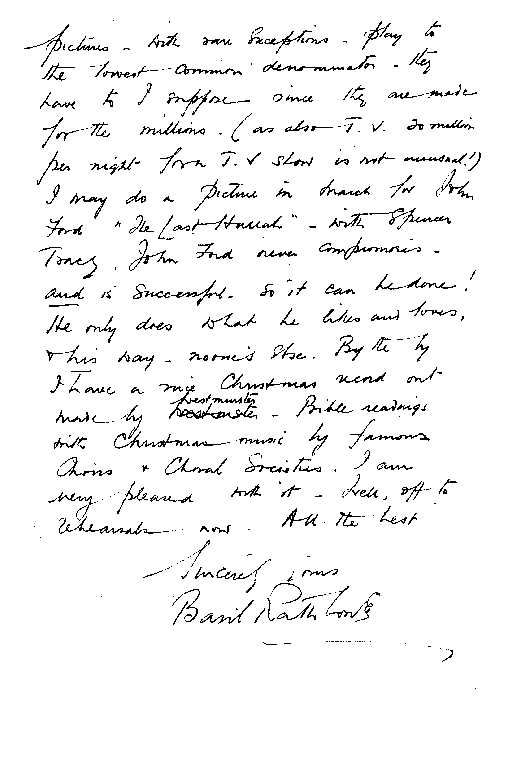 pictures - with rare exceptions - play to
the "lowest common denominator - they
have to I suppose since they are made
for the millions. (as also T.V. 30 million
per night for a T.V show is not unusual!)
I may do a picture in March for John
Ford "The Last Hurrah" - with Spencer
Tracy. John Ford never compromises -
and is successful. So it can be done!
He only does what he likes and loves,
+ his way - noone's else. By the by
I have a nice Christmas record out
made by Westminster - Bible readings
with Christmas music by famous
Choirs + Choral Societies. I am
very pleased with it - Well, off to
rehearsals now. All the best
Sincerely yours
Basil Rathbone